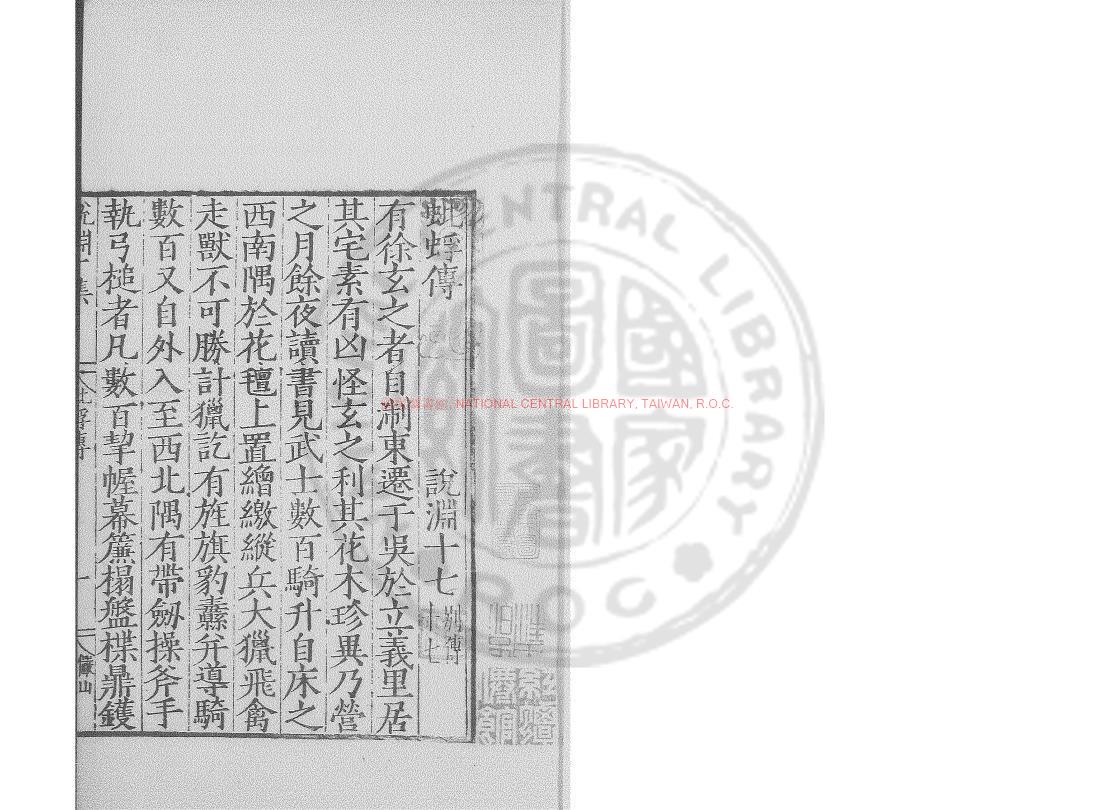 蚍蜉傳 說淵十七 別傳十七
有徐玄之者自浙東遷于吳於立義里居
其宅素有凶怪玄之利其花木珍異乃營
之月餘夜讀書見武士數百騎升自床之
西南隅於花氊上置繒繳縱兵大獵飛禽
走獸不可勝計獵訖有旌旗豹纛并導騎
數百又自外入至西北隅有帶劒操斧手
執弓槌者凡數百挈幄幕簾榻盤楪鼎鑊
儼山
NATIONAL CENTRAL LIBRARY, TAIWAN, R.O.C.
CENTRAL LIBRARY
R.O.C
國家圖書